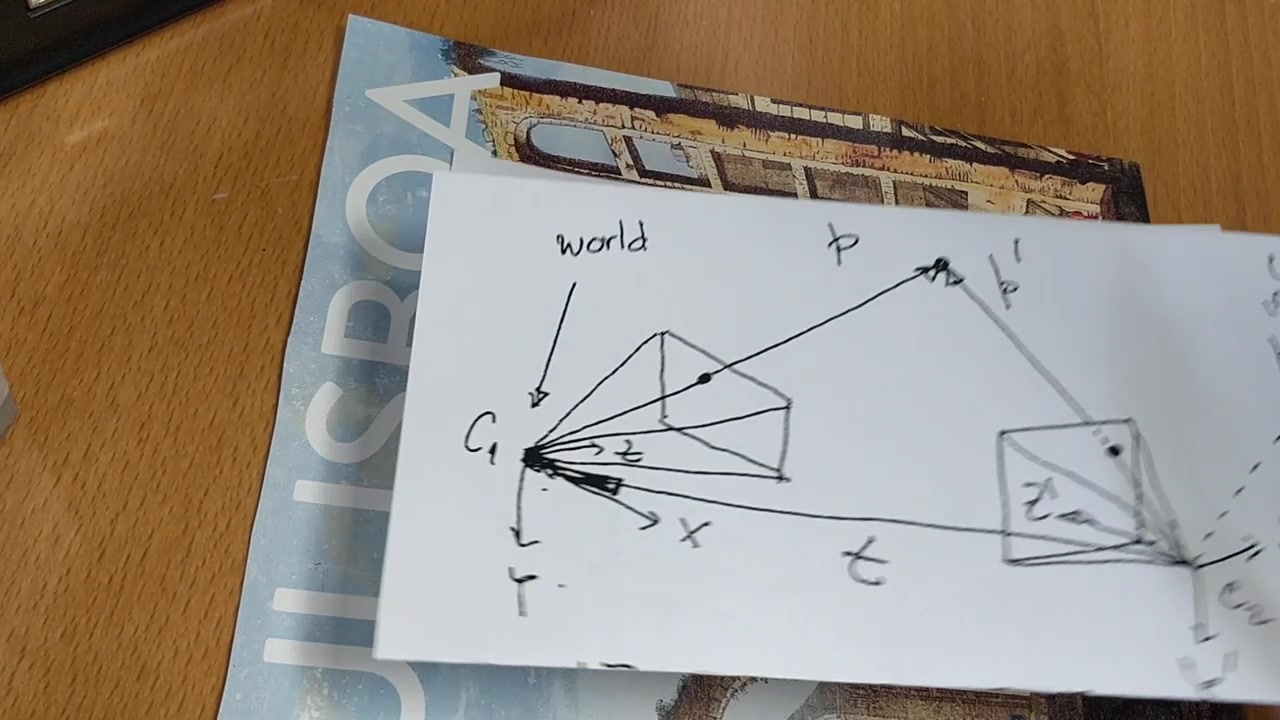 LISBOA
world
p
p'
C1
z
x
t
z'
Y
C2